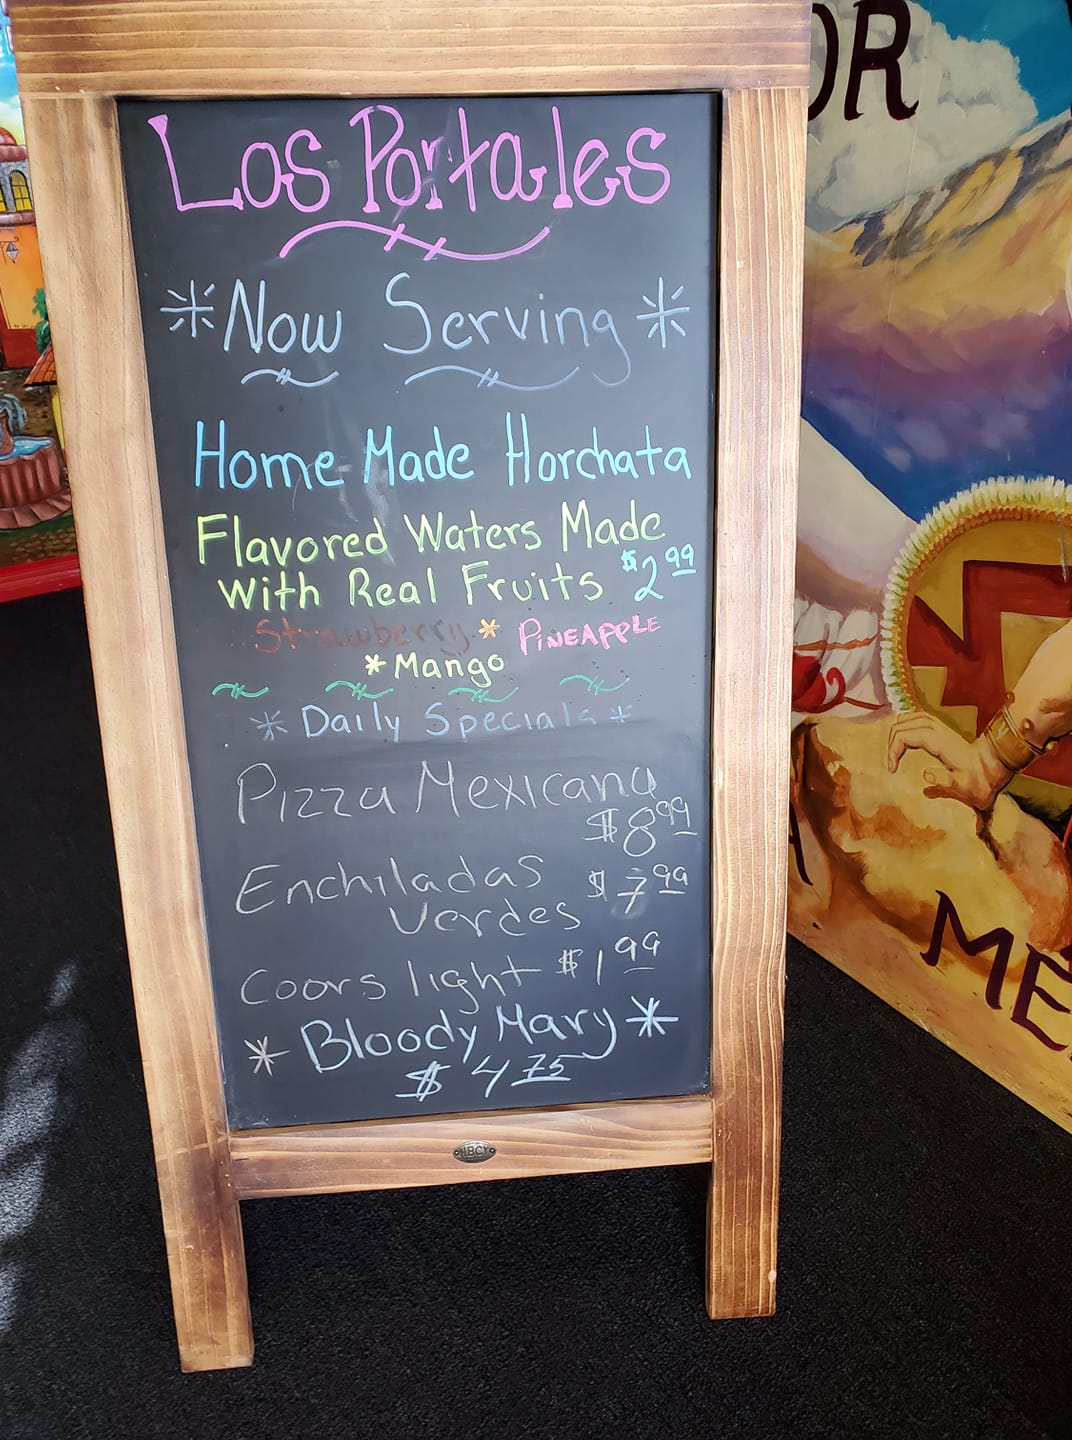 Los Portales
*Now Serving*
Home Made Horchata
Flavored Waters Made
with Real Fruits $2.99
Strawberry * PINEAPPLE
*Mango
* Daily Specials *
Pizza Mexicana
$8.99
Enchiladas $7.99
Verdes
Coors light $1.99
* Bloody Mary *
$4.75
HBCY
OR
ME